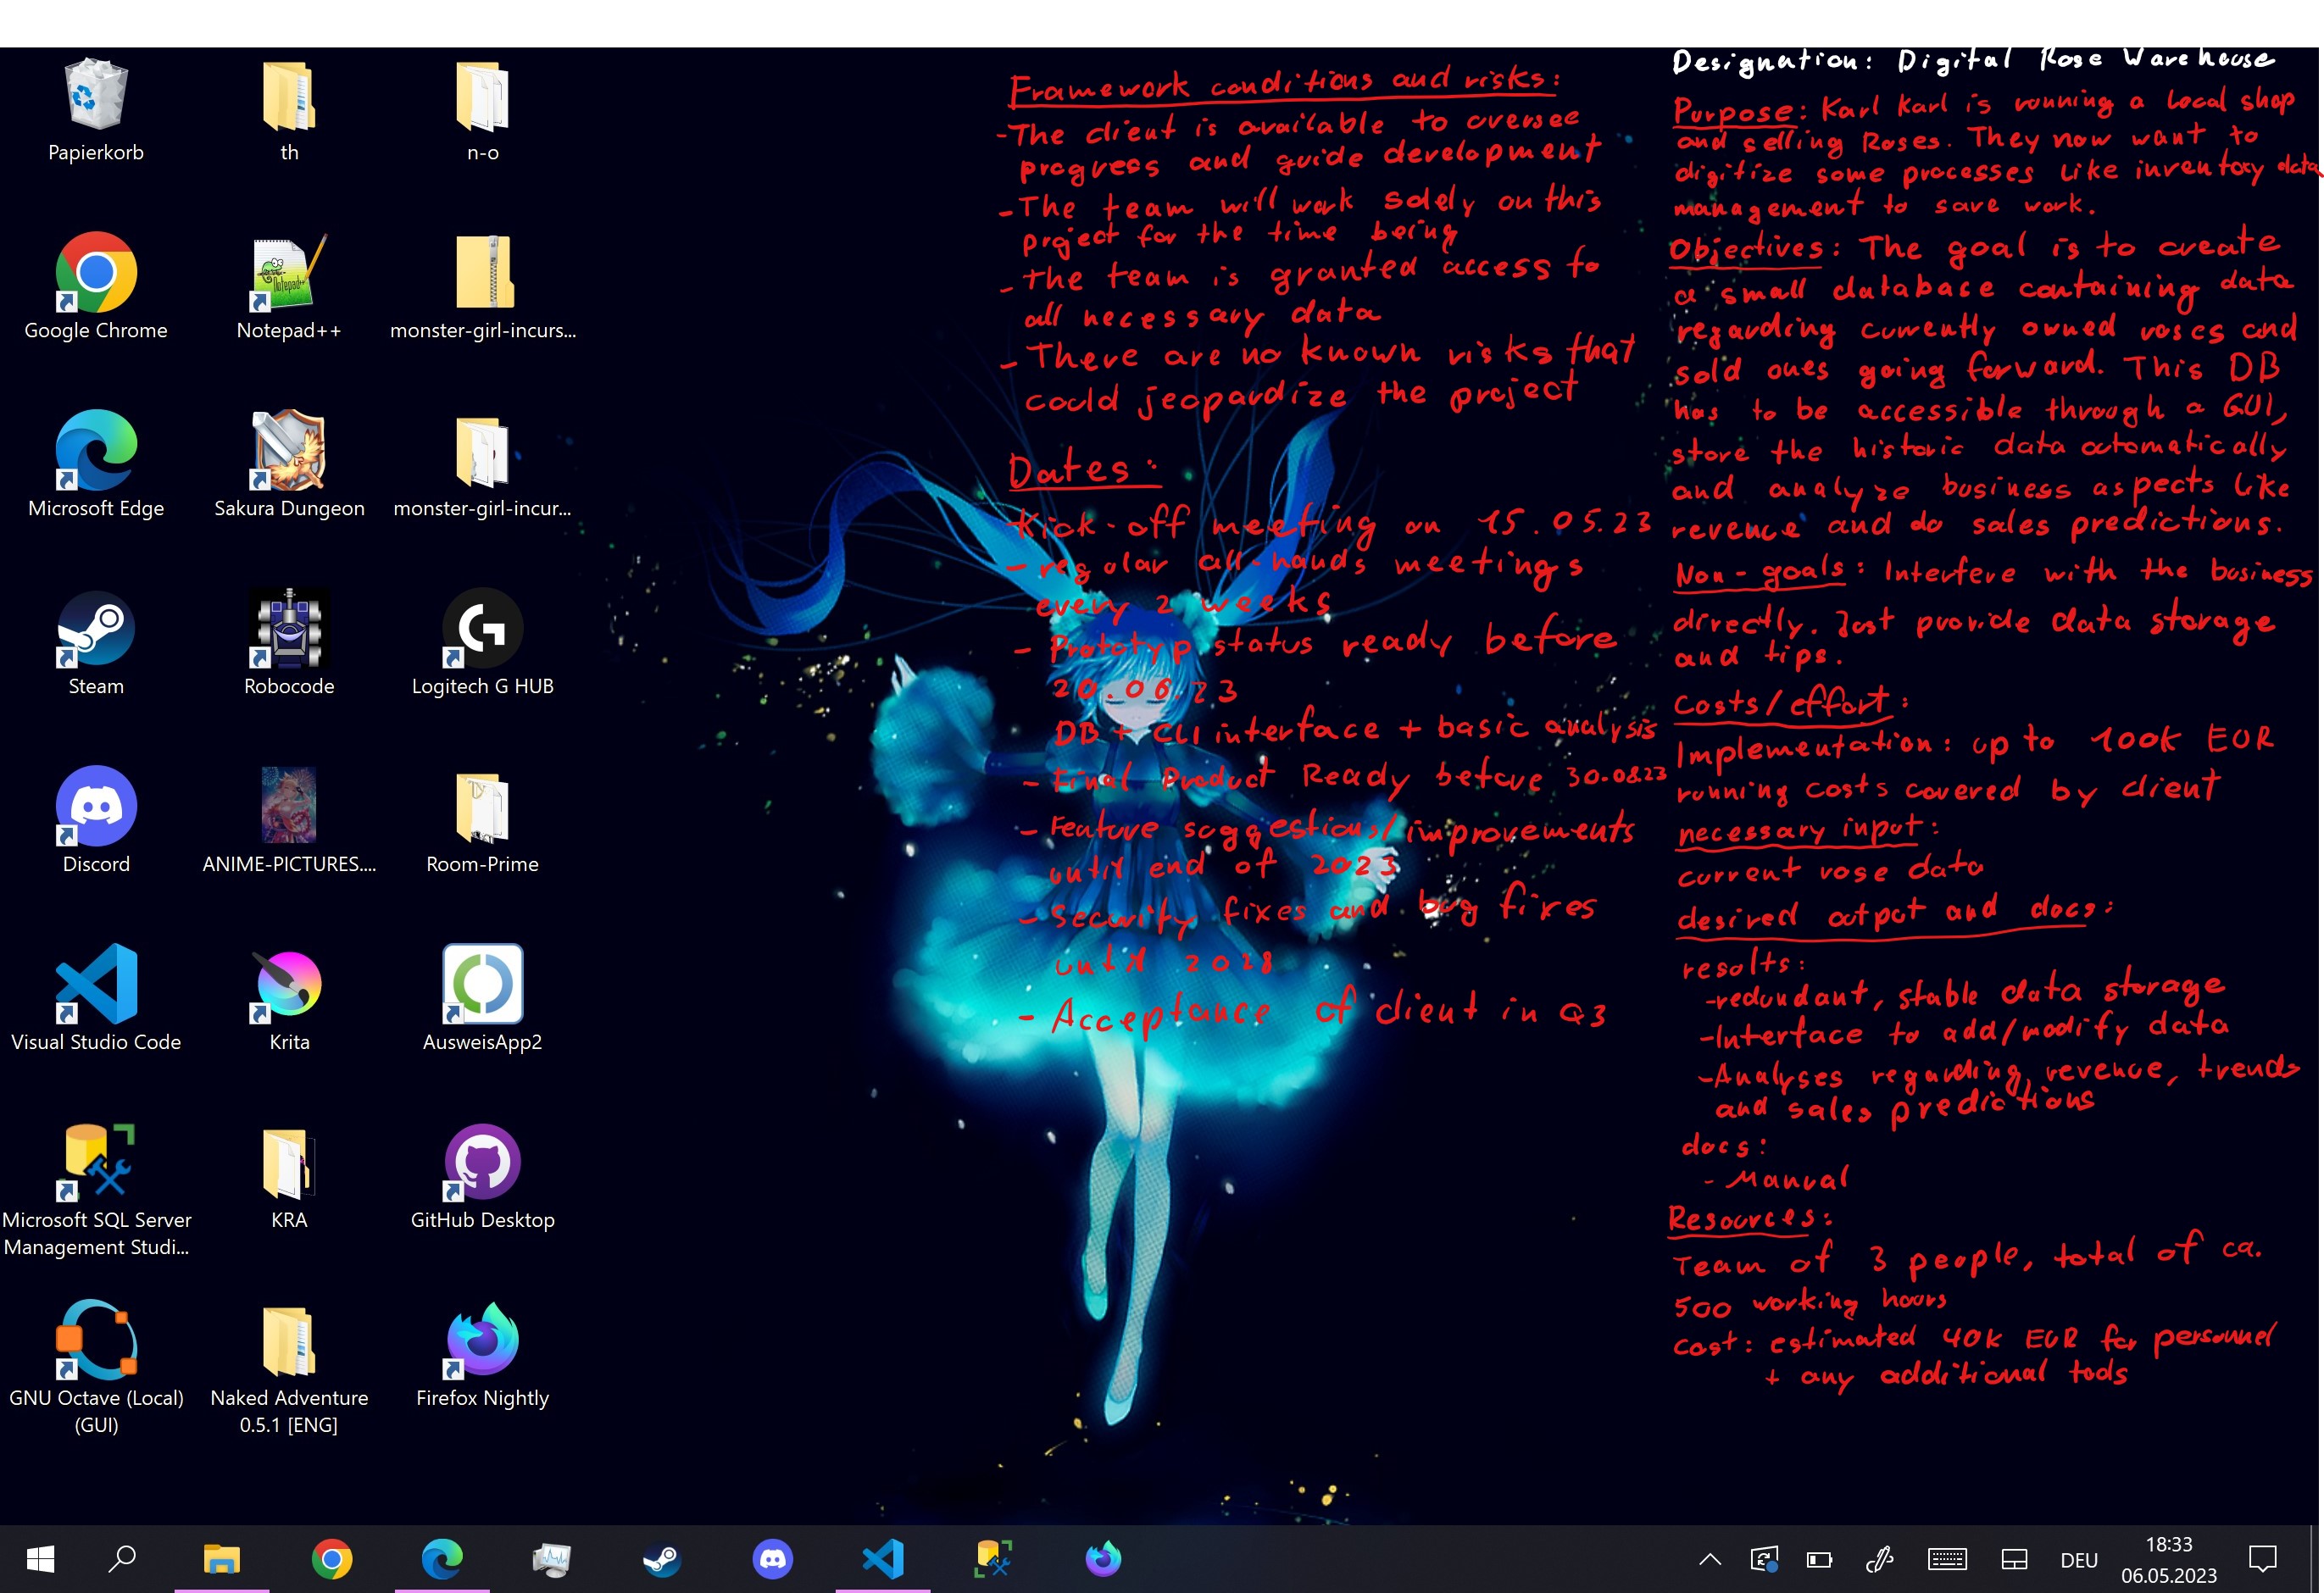 Papierkorb
th
n-o
Google Chrome
Notepad++
monster-girl-incurs...
Microsoft Edge
Sakura Dungeon
monster-girl-incur...
Steam
Robocode
Logitech G HUB
Discord
ANIME-PICTURES....
Room-Prime
Visual Studio Code
Krita
AusweisApp2
Microsoft SQL Server
Management Studi...
KRA
GitHub Desktop
GNU Octave (Local)
(GUI)
Naked Adventure
0.5.1 [ENG]
Firefox Nightly
Framework conditions and risks:
-The client is available to oversee
progress and guide development
-The team will work solely on this
project for the time being
-The team is granted access to
all necessary data
-There are no known risks that
could jeopardize the project
Dates:
Kick-off meeting on 15.05.23
- regular all-hands meetings
every 2 weeks
- Prototyp status ready before
20.06.23
DB + CLI interface + basic analysis
- Final Product Ready before 30.08.23
- Feature suggestions/improvements
until end of 2023
- Security fixes and bug fixes
until 2028
- Acceptance of client in Q3
Designation: Digital Rose Warehouse
Purpose: Karl Karl is running a local shop
and selling Roses. They now want to
digitize some processes like inventory data
management to save work.
Objectives: The goal is to create
a small database containing data
regarding currently owned roses and
sold ones going forward. This DB
has to be accessible through a GUI,
store the historic data automatically
and analyze business aspects like
revenue and do sales predictions.
Non-goals: Interfere with the business
directly. Just provide data storage
and tips.
Costs/effort:
Implementation: up to 100K EUR
running costs covered by client
necessary input:
current rose data
desired output and docs:
results:
-redundant, stable data storage
-Interface to add/modify data
-Analyses regarding revenue, trends
and sales predictions
docs:
- Manual
Resources:
Team of 3 people, total of ca.
500 working hours
Cost: estimated 40K EUR for personnel
+ any additional tools
DEU
18:33
06.05.2023